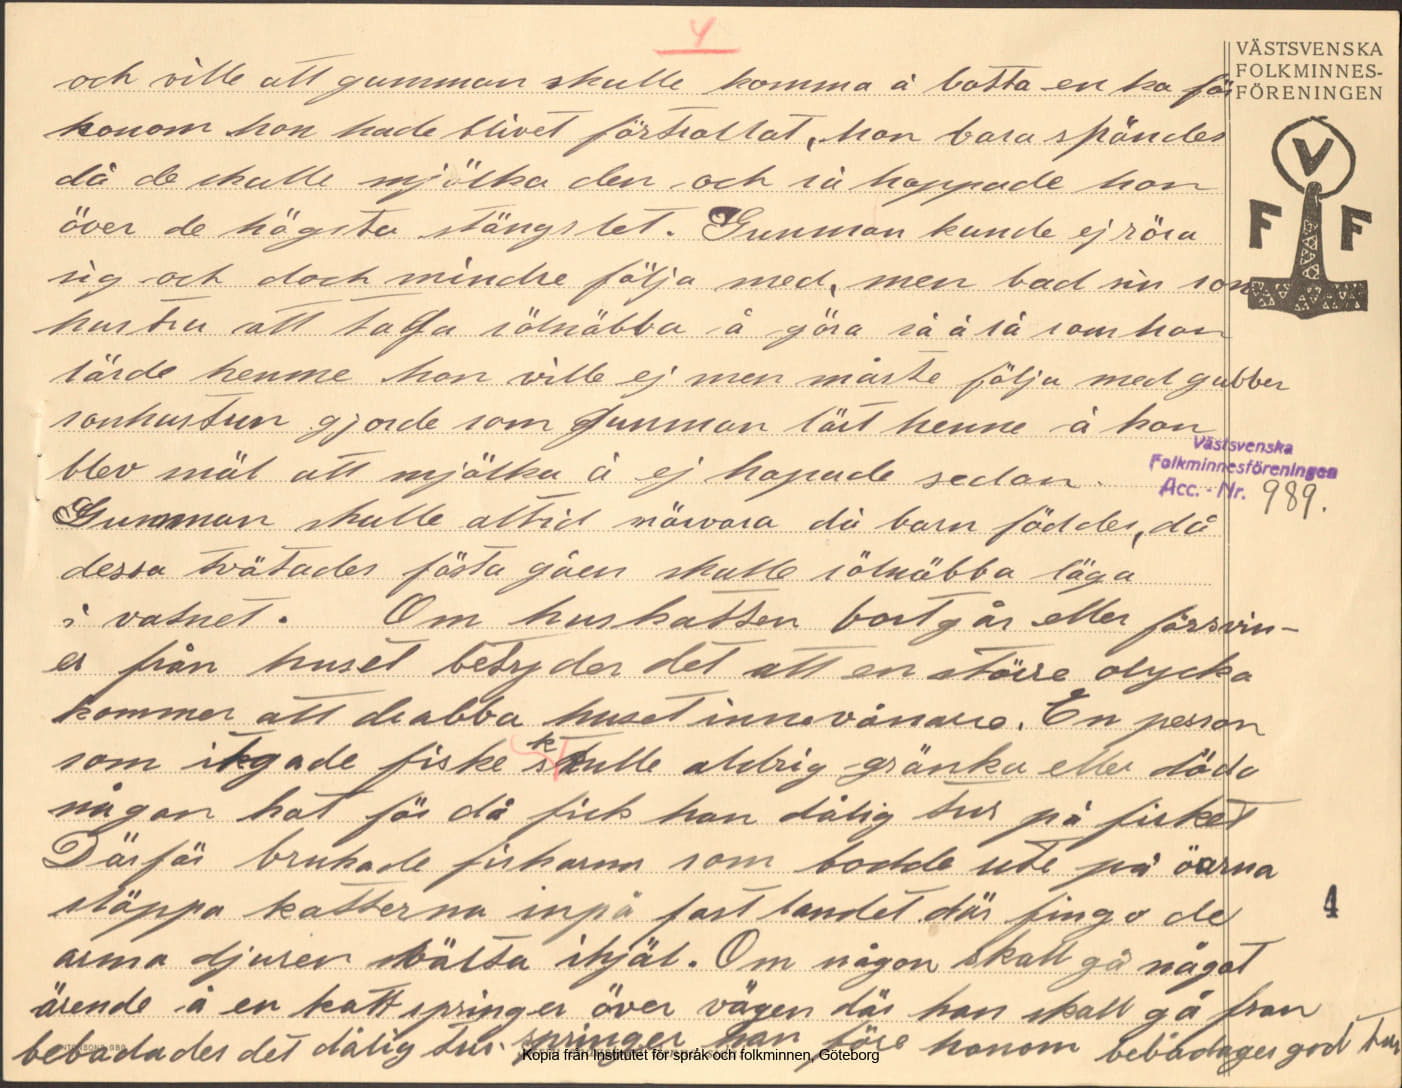 4
VÄSTSVENSKA
FOLKMINNES-
FÖRENINGEN
V
F F
och ville att gumman skulle komma å botta en ko för
honom hon hade blivet förtrollat, hon bara spändes
då de skulle mjölka den och så hoppade hon
över de högsta stängslet. Gumman kunde ej röra
sig och doch mindre följa med, men bad sin son
hustru att taga sölnäbba å göra så å så som hon
lärde henne hon ville ej men måste följa med gubben
sonhustrun gjorde som gumman lärt henne å kon
blev mäl att mjölka å ej hopade sedan.
Västsvenska
Folkminnesföreningen
Acc. - Nr. 989.
Gumman skulle altid närvara då barn föddes, då
dessa tvätades fösta gåen skulle sölnäbba läga
i vatnet. Om huskatten bortgår eller försvin-
er från huset betyder det att en större olycka
kommer att drabba huset innevånare. En person
som itkgade fiske skulle aldrig gränka eller döda
någon kat för då fick han dålig tur på fisket
Därför brukade fiskarna som bodde ute på öarna
släppa katterna inpå fast landet där fingo de
arma djuren svälta ihjäl. Om någon skall gå något
ärende å en katt springer över vägen där han skall gå fram
bebådades det dålig tur. springer han före honom bebådages god tur
4
Kopia från Institutet för språk och folkminnen, Göteborg